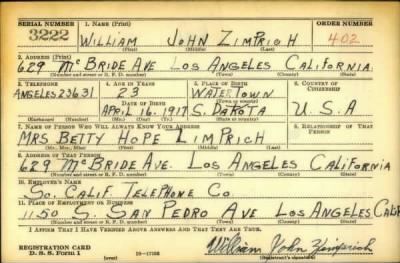 SERIAL NUMBER 1. NAME (Print) ORDER NUMBER
3222 WILLIAM JOHN ZIMPRICH 402
(First) (Middle) (Last)
2. ADDRESS (Print)
629 McBRIDE AVE LOS ANGELES CALIFORNIA
(Number and street or R. F. D. number) (Town) (County) (State)
3. TELEPHONE 4. AGE IN YEARS 5. PLACE OF BIRTH 6. COUNTRY OF CITIZENSHIP
23 WATERTOWN
ANGELES 23631 DATE OF BIRTH (Town or county)
APRIL 16, 1917 S. DAKOTA U.S.A
(Exchange) (Number) (Mo.) (Day) (Yr.) (State or country)
7. NAME OF PERSON WHO WILL ALWAYS KNOW YOUR ADDRESS 8. RELATIONSHIP OF THAT PERSON
MRS BETTY HOPE ZIMPRICH
(Mr., Mrs., Miss) (First) (Middle) (Last)
9. ADDRESS OF THAT PERSON
629 McBRIDE AVE. LOS ANGELES CALIFORNIA
(Number and street or R. F. D. number) (Town) (County) (State)
10. EMPLOYER'S NAME
SO. CALIF. TELEPHONE CO.
11. PLACE OF EMPLOYMENT OR BUSINESS
1150 S. SAN PEDRO AVE LOS ANGELES CALIF
(Number and street or R. F. D. number) (Town) (County) (State)
I AFFIRM THAT I HAVE VERIFIED ABOVE ANSWERS AND THAT THEY ARE TRUE.
REGISTRATION CARD
D. S. S. Form 1 (over) William John Zimprich
(Registrant's signature)